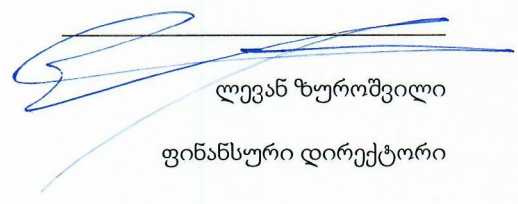 ლევან ზუროშვილი
ფინანსური დირექტორი